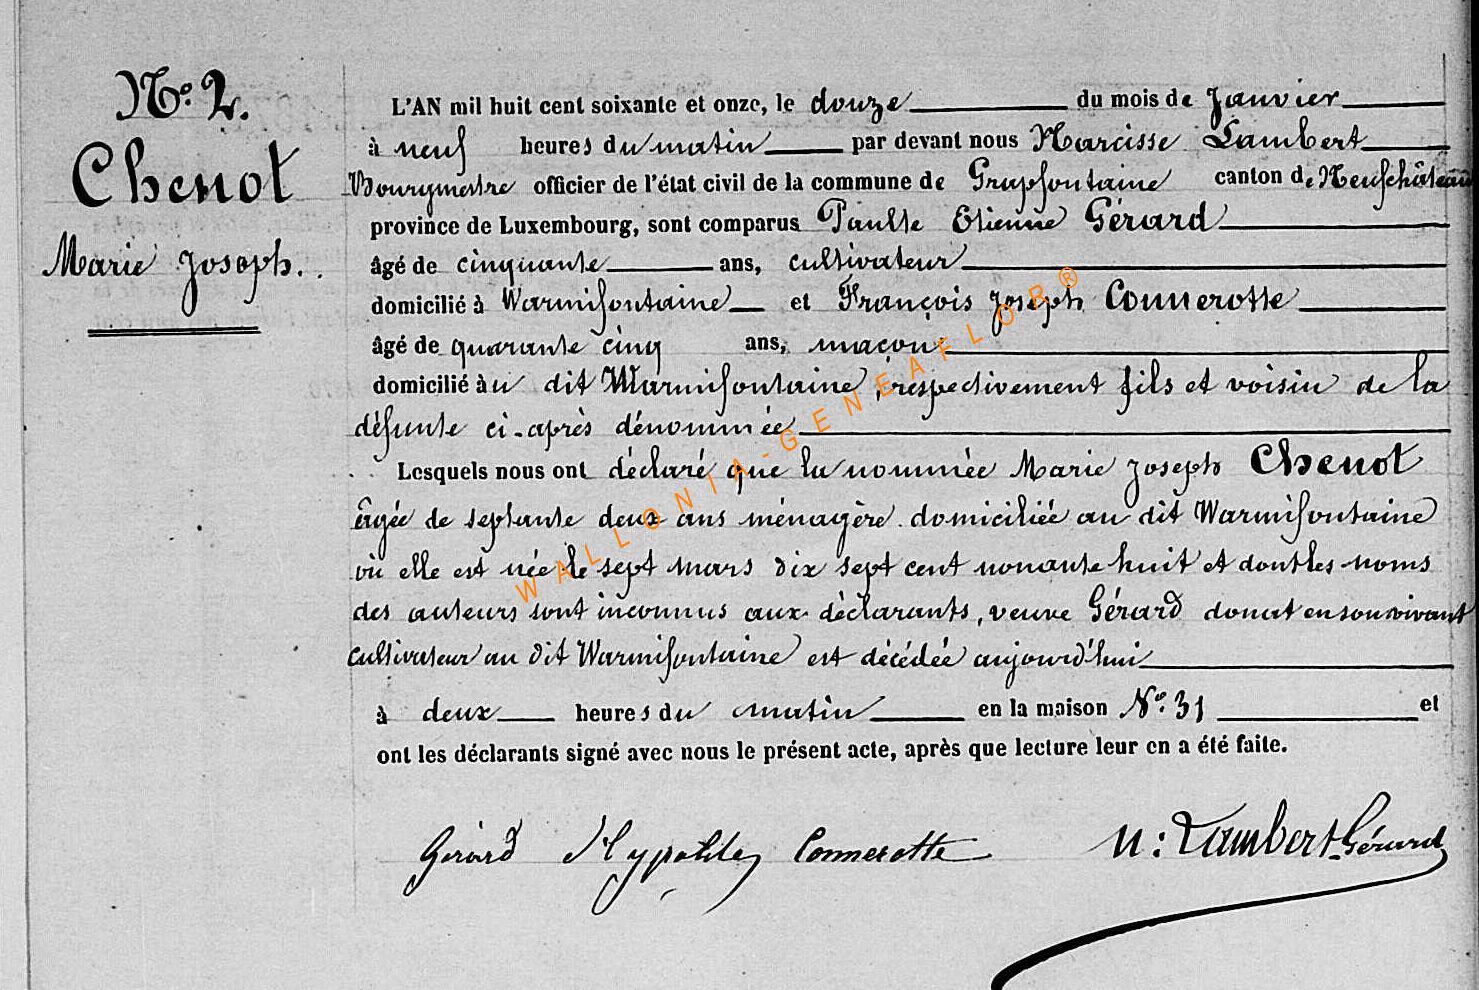 No. 2.
Chenot
Marie Joseph.
L'AN mil huit cent soixante et onze, le douze du mois de Janvier
à neuf heures du matin par devant nous Narcisse Lambert
Bourgmestre officier de l'état civil de la commune de Grapfontaine canton de Neufchâteau
province de Luxembourg, sont comparus Paulte Etienne Gérard
âgé de cinquante ans, cultivateur
domicilié à Warmifontaine et François Joseph Connerotte
âgé de quarante cinq ans, maçon
domicilié au dit Warmifontaine, respectivement fils et voisin de la
défunte ci-après dénommée
Lesquels nous ont déclaré que la nommée Marie Joseph Chenot
âgée de septante deux ans ménagère domiciliée au dit Warmifontaine
où elle est née le sept mars dix sept cent nonante huit et dont les noms
des auteurs sont inconnus aux déclarants, veuve Gérard donat en son vivant
cultivateur au dit Warmifontaine est décédée aujourd'hui
à deux heures du matin en la maison No. 31 et
ont les déclarants signé avec nous le présent acte, après que lecture leur en a été faite.
Gérard Connerotte N: Lambert-Gérard
WALLONIA-GENEAFLOR®